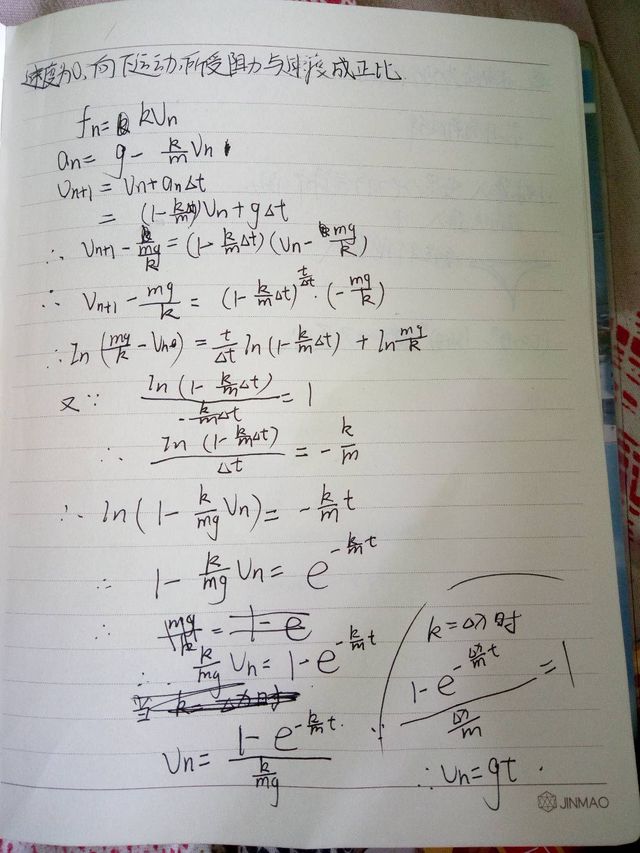 速度为0,向下运动,所受阻力与速度成正比
fn= kVn
an= g - k/m Vn
Vn+1 = Vn + anΔt
= (1-k/mΔt)Vn + gΔt
∴ Vn+1 - mg/k = (1-k/mΔt)(Vn - mg/k)
∴ Vn+1 - mg/k = (1-k/mΔt)^(t/Δt)·(-mg/k)
∴ ln(mg/k - Vn) = t/Δt ln(1-k/mΔt) + ln mg/k
又∵ ln(1-k/mΔt)/(-k/mΔt) = 1
∴ ln(1-k/mΔt)/Δt = -k/m
∴ ln(1 - k/mg Vn) = -k/m t
∴ 1 - k/mg Vn = e^(-k/m t)
∴ k/mg Vn = 1-e^(-k/m t)
Vn = (1-e^(-k/m t))/(k/mg)
时
=1
∴ Vn=gt.
JINMAO